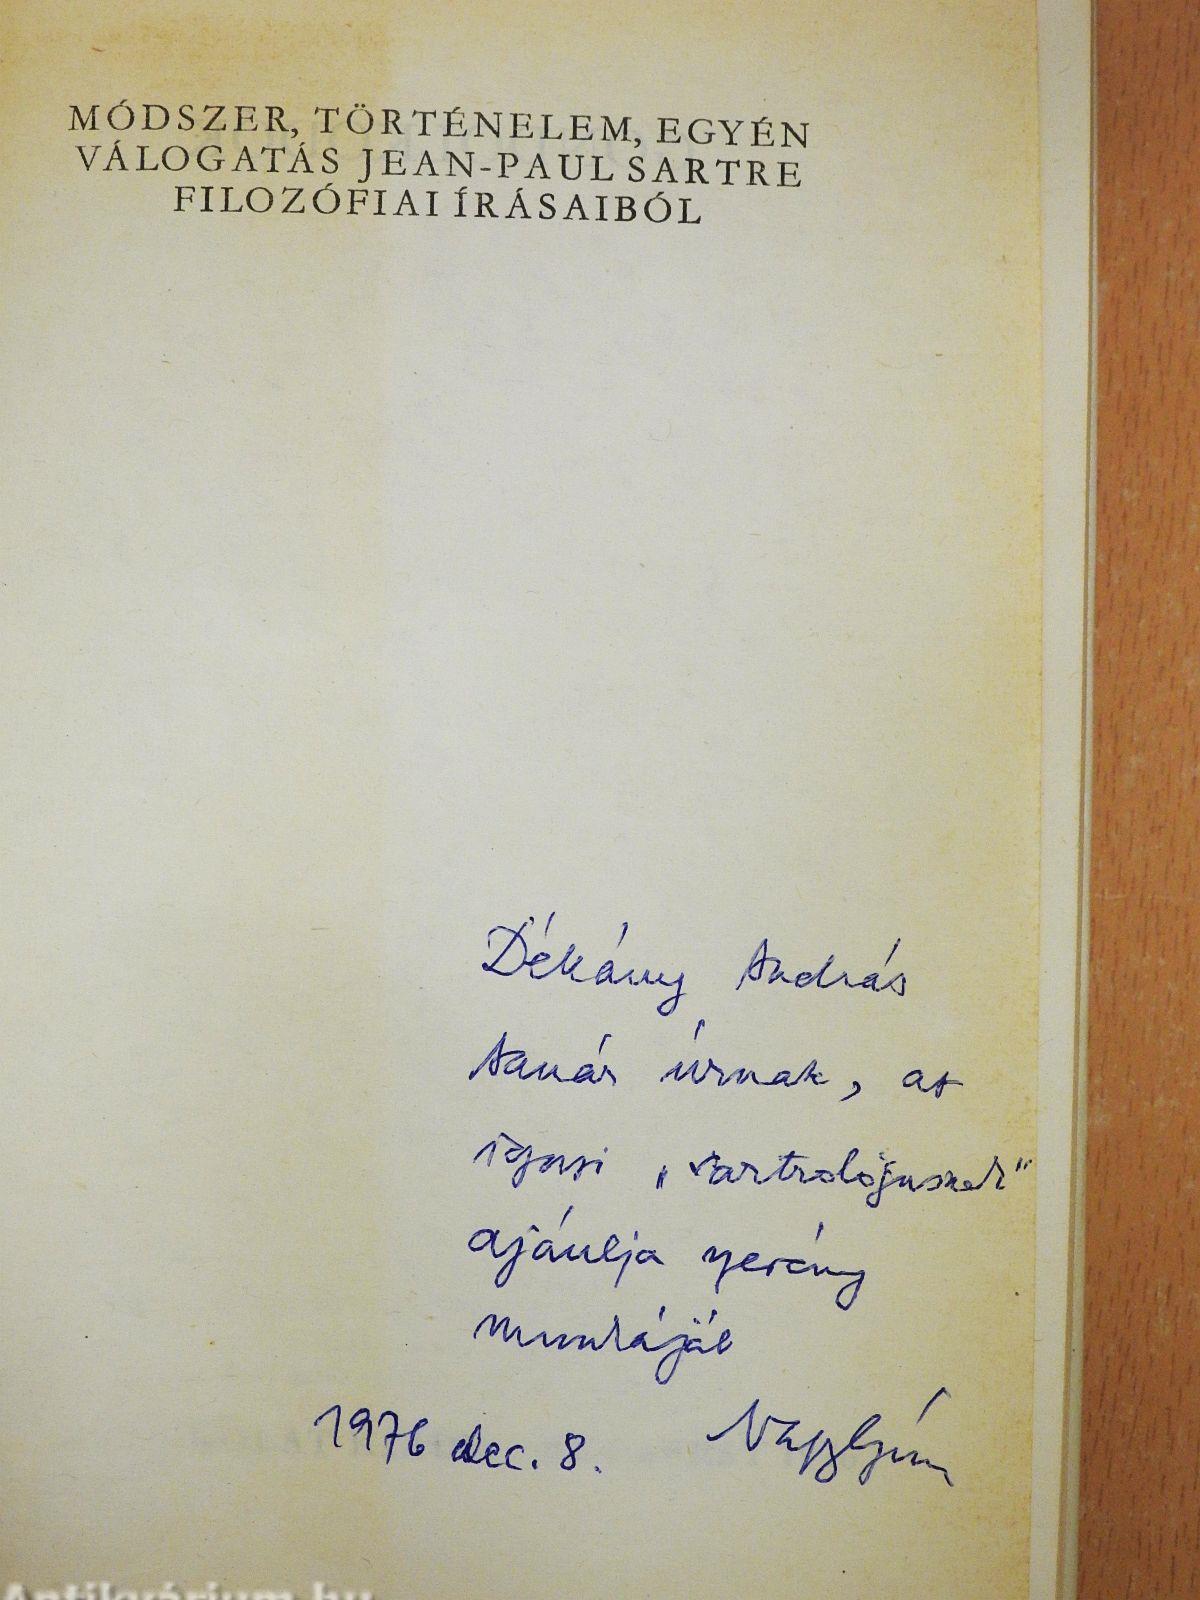 MÓDSZER, TÖRTÉNELEM, EGYÉN
VÁLOGATÁS JEAN-PAUL SARTRE
FILOZÓFIAI ÍRÁSAIBÓL
Dékány András
tanár úrnak, az
igazi „sartrológusnak"
ajánlja szerény
munkáját
1976 dec. 8.
Antikvárium.hu